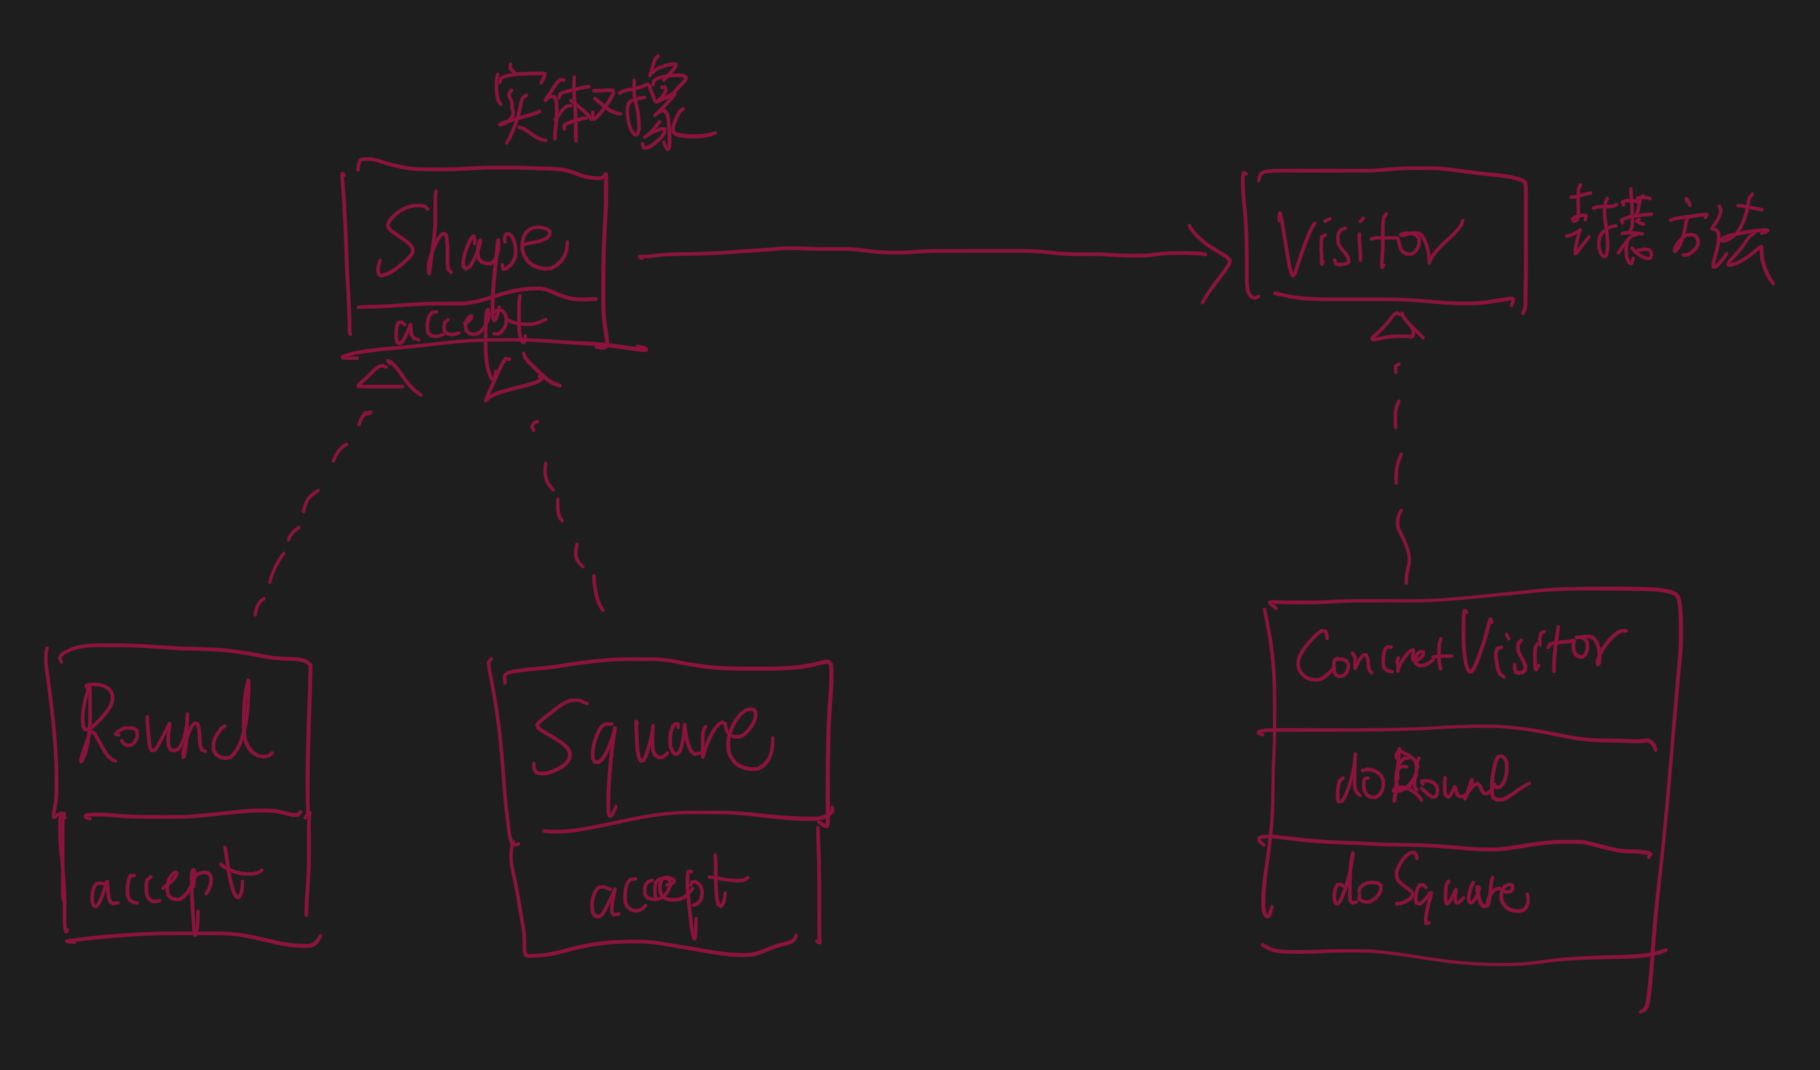 实体对象
Shape
accept
Visitor
方法
Round
accept
Square
accept
ConcretVisitor
doRound
doSquare